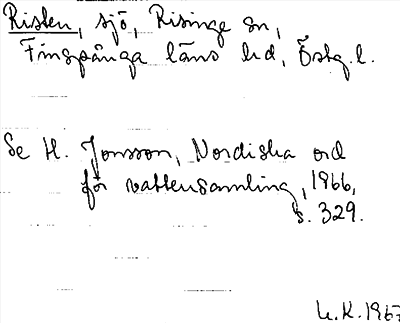 Risten, sjö, Risinge sn,
Finspånga läns hd, Östg. l.
Se H. Jonsson, Nordiska ord
för vattensamling, 1966,
s. 329.
U.K. 1967